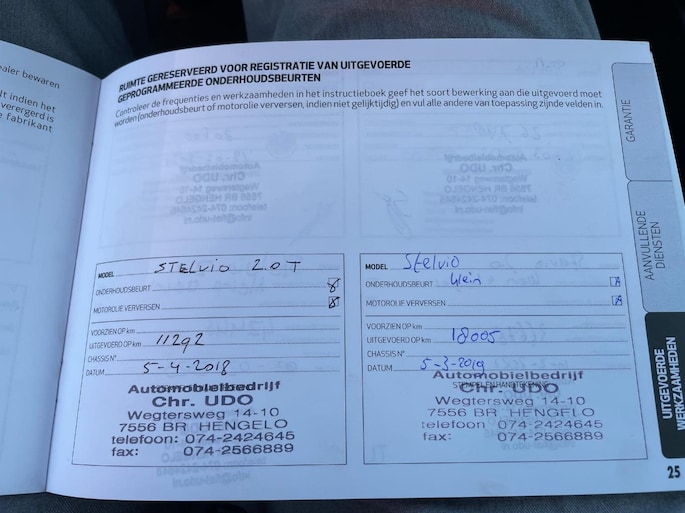 ealer bewaren
lt indien het
verergerd is
e fabrikant
RUIMTE GERESERVEERD VOOR REGISTRATIE VAN UITGEVOERDE
GEPROGRAMMEERDE ONDERHOUDSBEURTEN
Controleer de frequenties en werkzaamheden in het instructieboek geef het soort bewerking aan die uitgevoerd moet
worden (onderhoudsbeurt of motorolie verversen, indien niet gelijktijdig) en vul alle andere van toepassing zijnde velden in.
GARANTIE
AANVULLENDE
DIENSTEN
UITGEVOERDE
WERKZAAMHEDEN
MODEL STELVIO 2.0 T
ONDERHOUDSBEURT
MOTOROLIE VERVERSEN
VOORZIEN OP km
UITGEVOERD OP km 11292
CHASSIS N°
DATUM 5-4-2018
Automobielbedrijf
Chr. UDO
Wegtersweg 14-10
7556 BR HENGELO
telefoon: 074-2424645
fax: 074-2566889
MODEL Stelvio
ONDERHOUDSBEURT klein
MOTOROLIE VERVERSEN
VOORZIEN OP km
UITGEVOERD OP km 18005
CHASSIS N°
DATUM 5-3-2019
Automobielbedrijf
STEMPEL EN HANDTEKENING
Chr. UDO
Wegtersweg 14-10
7556 BR HENGELO
telefoon: 074-2424645
fax: 074-2566889
25